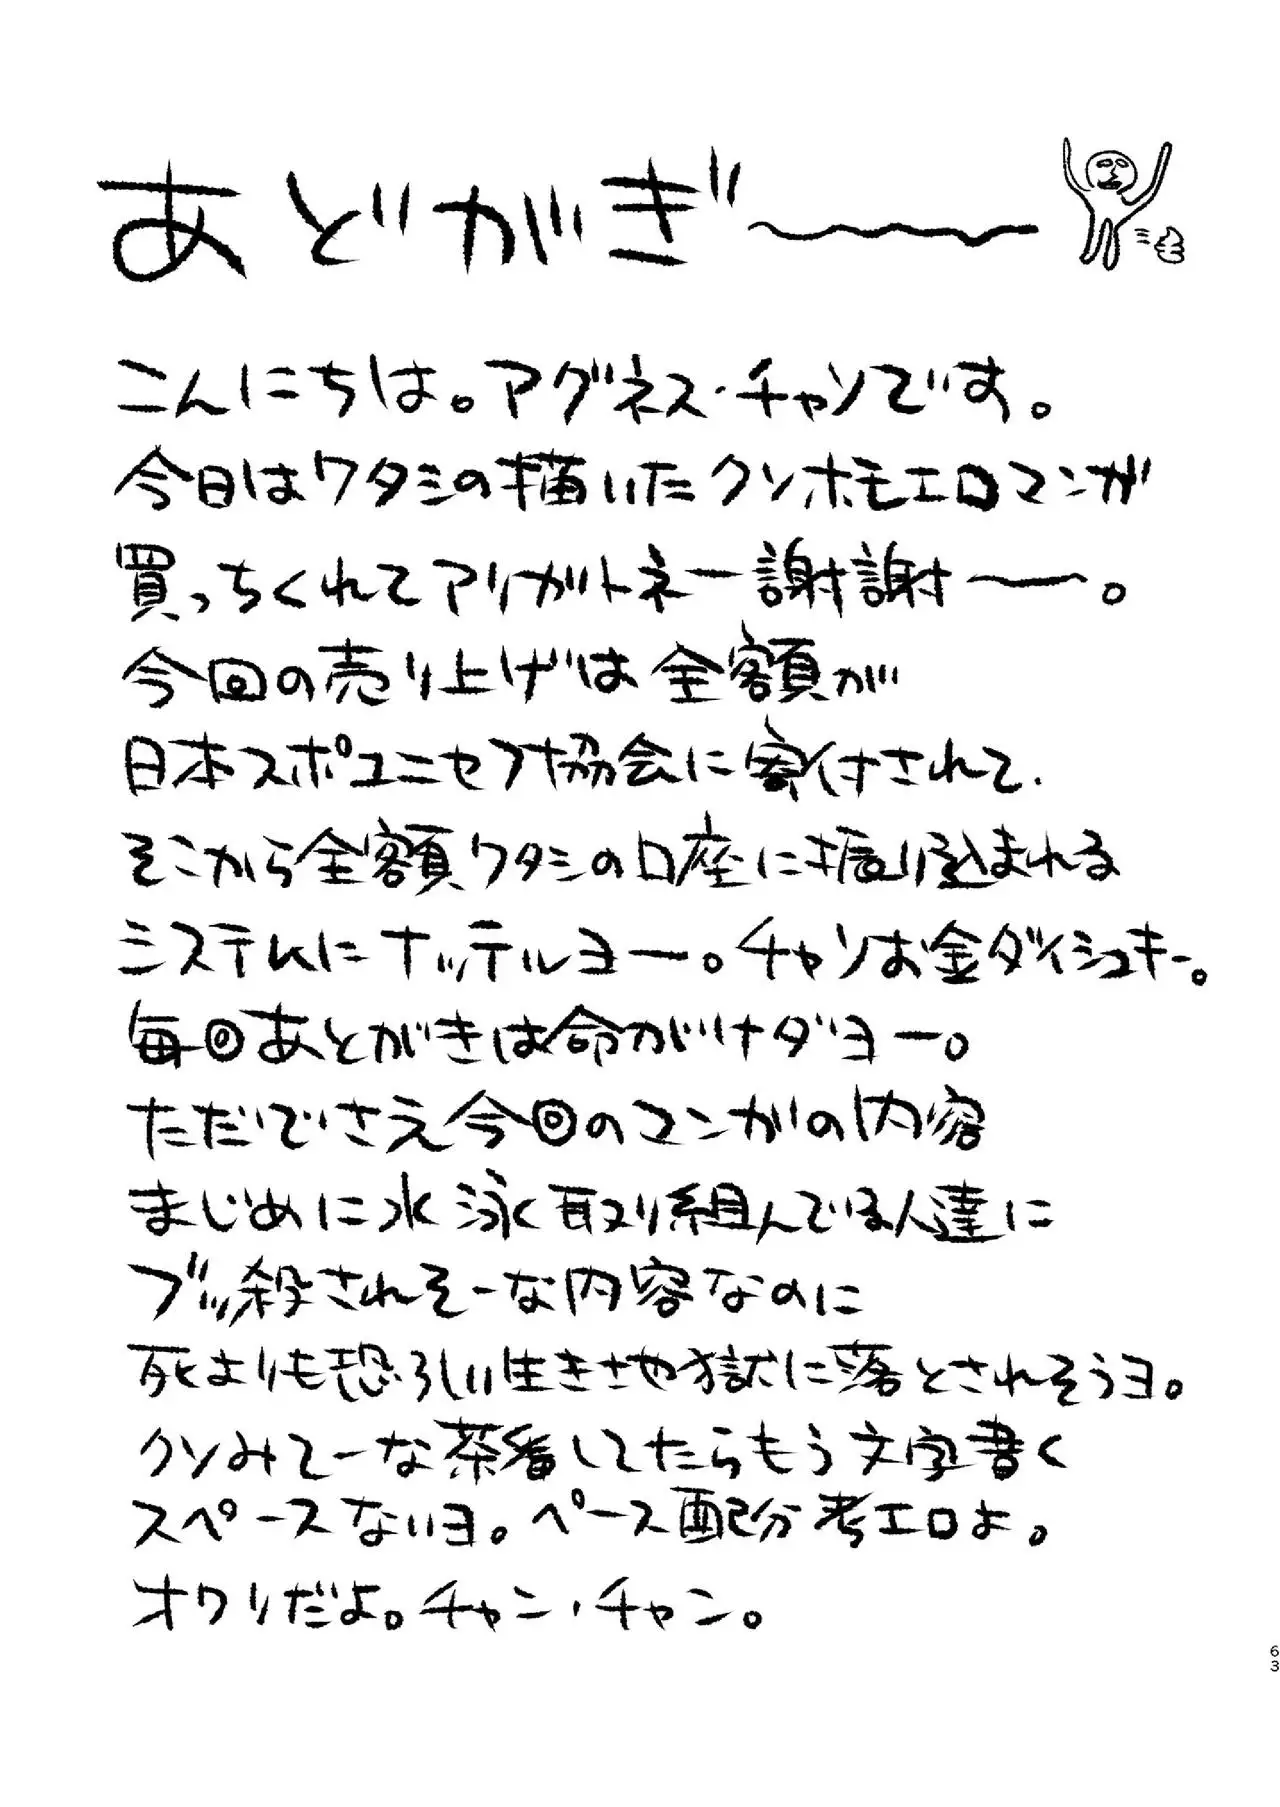 あどがぎ〜〜
こんにちは。アグネス・チャンです。
今日はワタシの描いたクソホモエロマンガ
買っちくれてアリガトネー謝謝ー〜。
今回の売り上げは全額が
日本スポユニセフ協会に寄付されて、
そこから全額ワタシの口座に振り込まれる
システムにナッテルヨー。チャンはお金ダイシュキー。
毎回あとがきは命がけナダヨー。
ただでさえ今回のマンガの内容
まじめに水泳取り組んでる人達に
ブッ殺されそーな内容なのに
死よりも恐ろしい生き地獄に落とされそうヨ。
クソみてーな茶番してたらもう文字書く
スペースないヨ。ペース配分考エロよ。
オワリだよ。チャン・チャン。
63